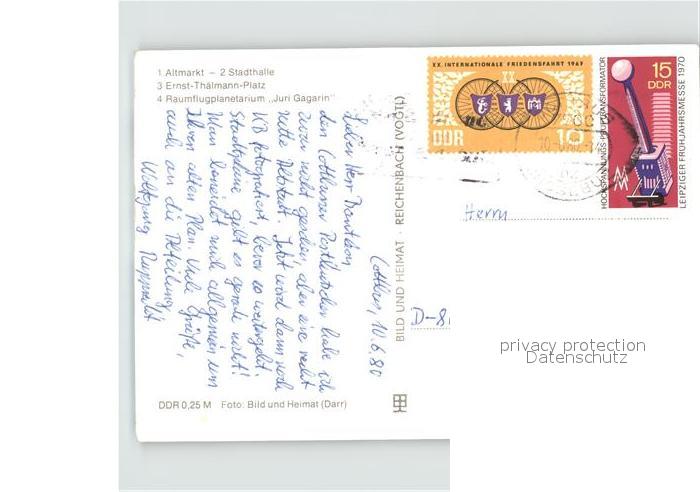 1 Altmarkt – 2 Stadthalle
3 Ernst-Thälmann-Platz
4 Raumflugplanetarium „Juri Gagarin"
XX. INTERNATIONALE FRIEDENSFAHRT 1967
XX
DDR
10
15
DDR
HOCHSPANNUNGS-PRÜFTRANSFORMATOR
LEIPZIGER FRÜHJAHRSMESSE 1970
Cottbus, 10.6.80
Lieber Herr
den Cottbuser Postkutscher habe ich
zwar nicht gesehen, aber eine recht
nette Altstadt. Jetzt wird dann noch
KB fotografiert, bevor es weitergeht.
Stadtpläne gibt es gerade nicht!
Man benutzt mal allgemein
Ihren alten Plan. Viele Grüße,
auch an die Abteilung
Wolfgang
BILD UND HEIMAT · REICHENBACH (VOGTL)
Herrn
D-8
privacy protection
Datenschutz
DDR 0,25 M Foto: Bild und Heimat (Darr)